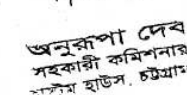 অনুরূপা দেব
সহকারী কমিশনার
কাস্টম হাউস, চট্টগ্রাম